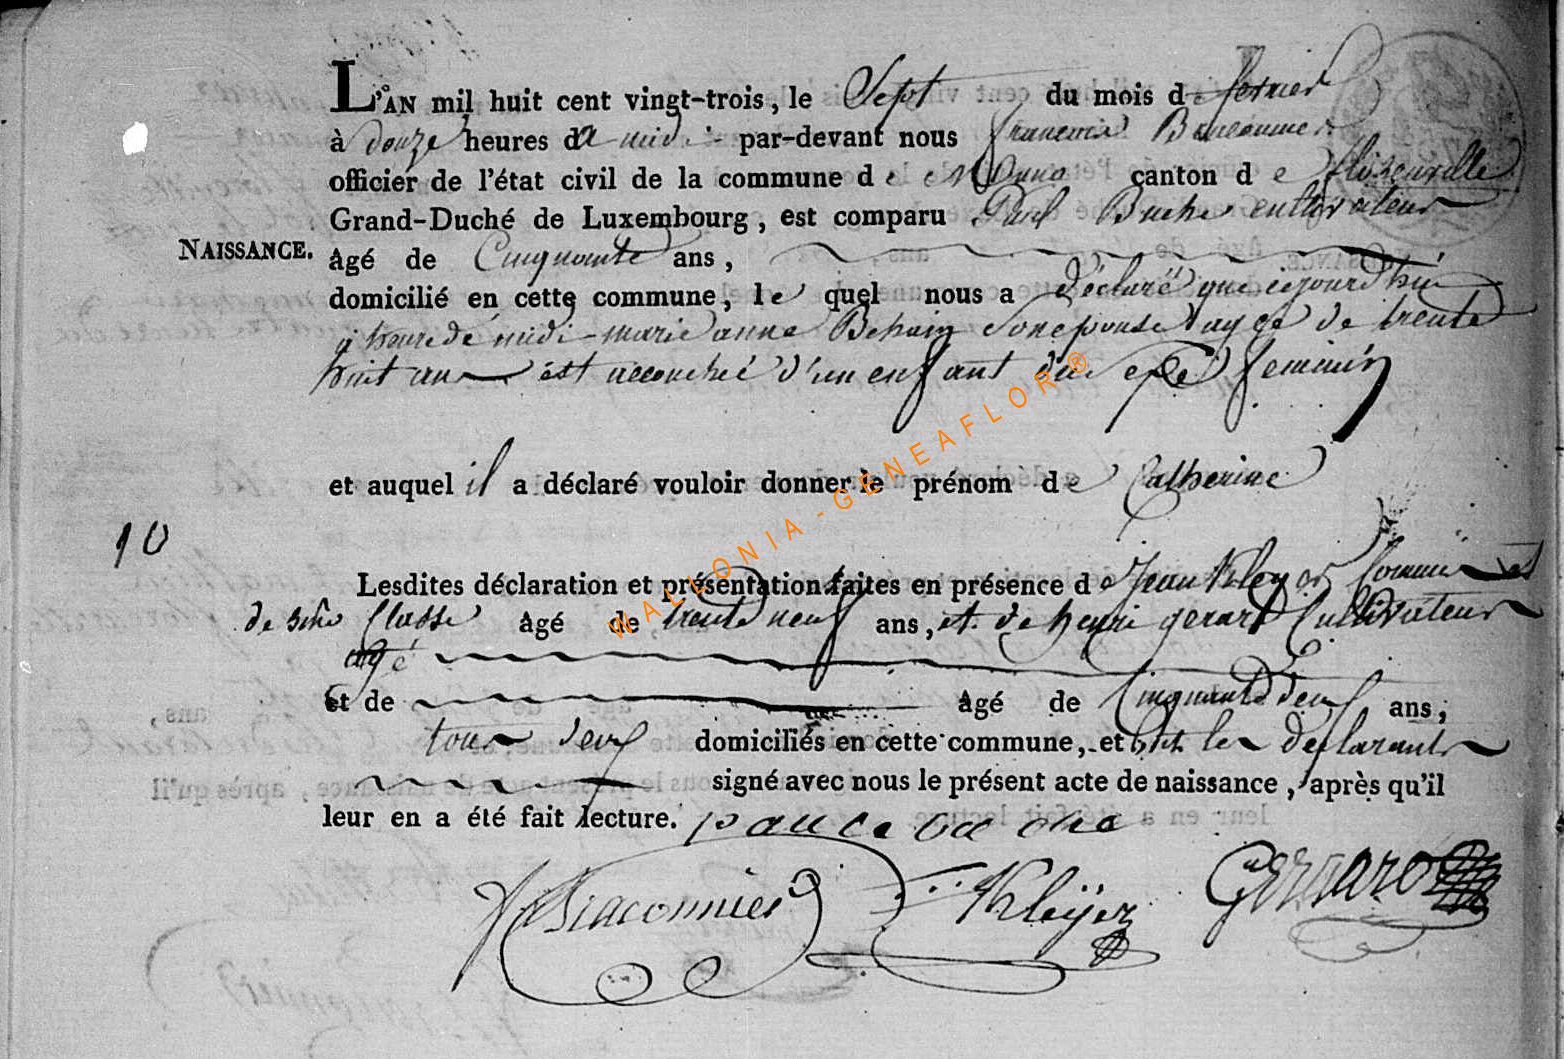 L'AN mil huit cent vingt-trois, le Sept du mois de fevrier
à douze heures da midi par-devant nous francois Braconnier
officier de l'état civil de la commune de Muno canton de florenville
Grand-Duché de Luxembourg, est comparu Paul Buche cultivateur
NAISSANCE. âgé de Cinquante ans,
domicilié en cette commune, le quel nous a déclaré que cejourdhui
a heure de midi marie anne Behain son epouse agée de trente
huit ans est accouchée d'un enfant du sexe feminin
et auquel il a déclaré vouloir donner le prénom de Catherine
10
Lesdites déclaration et présentation faites en présence de Jean Kleyer Commis
de 3me Classe âgé de trente neuf ans, et de henri gerard Cultivateur
agé
et de âgé de Cinquante deux ans,
tous deux domiciliés en cette commune, et ont les declarants
signé avec nous le présent acte de naissance, après qu'il
leur en a été fait lecture.
fBraconnier Kleÿer Gerard
WALLONIA - GENEAFLOR ®